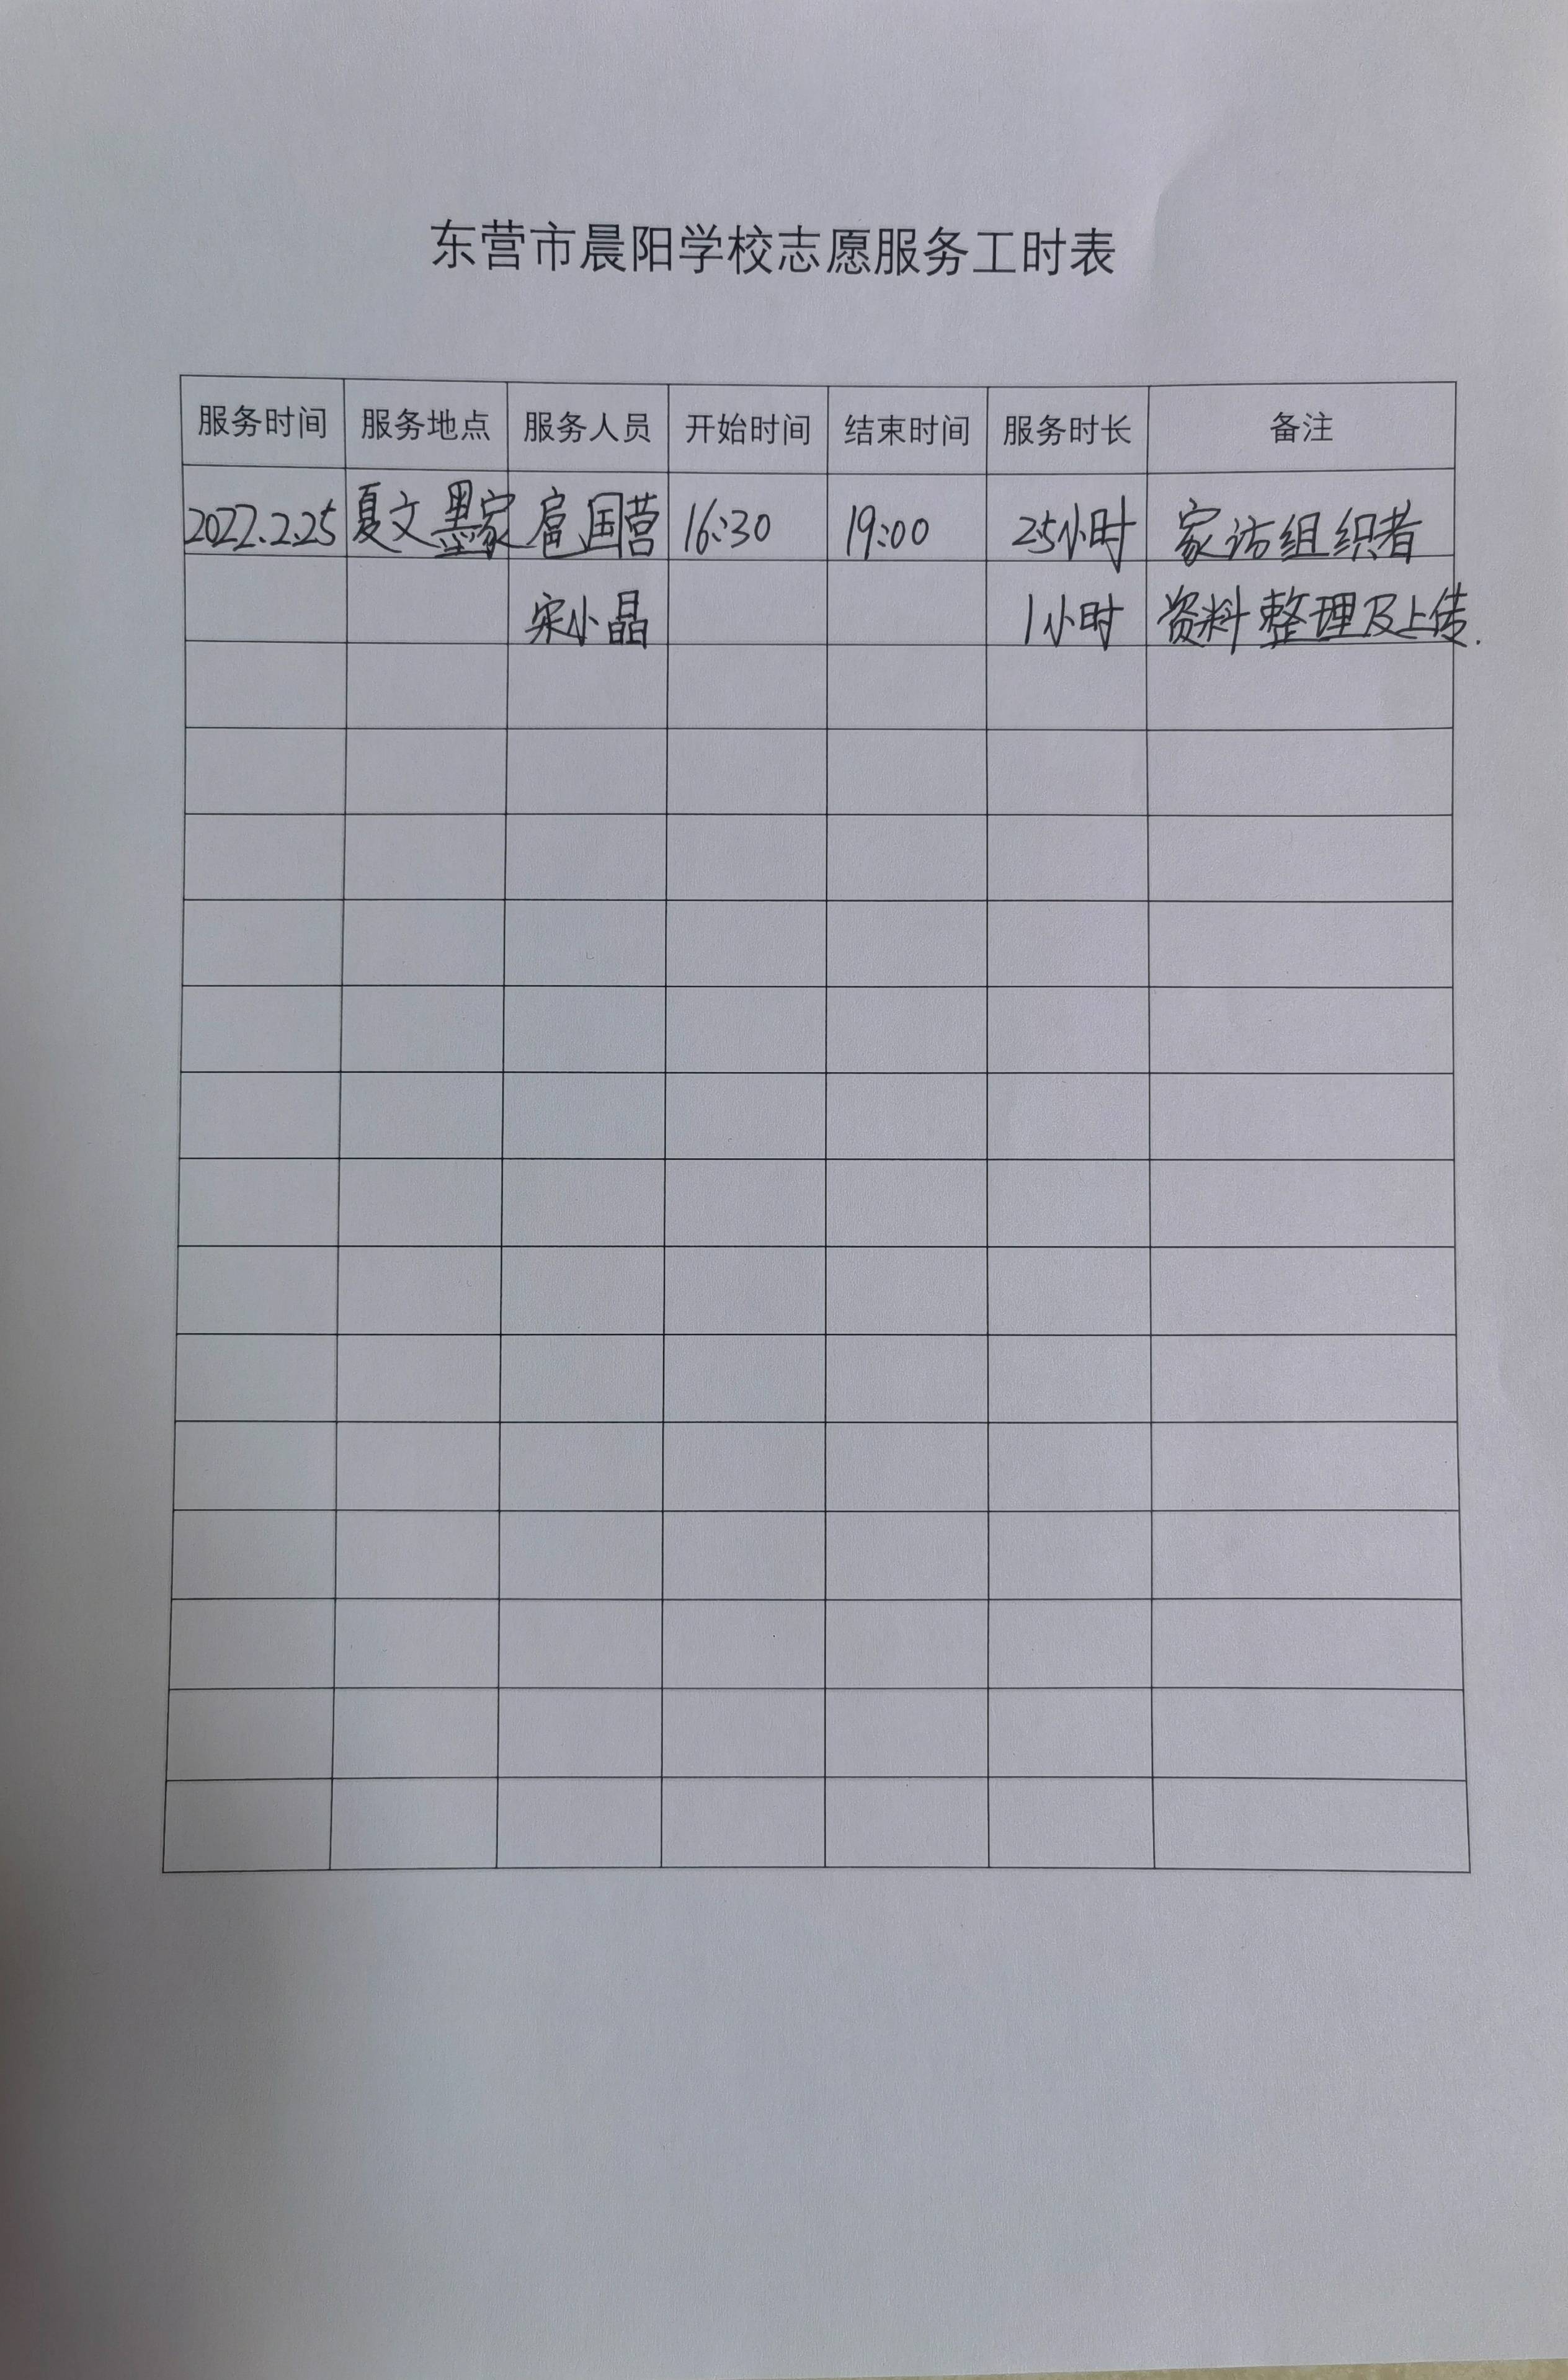 东营市晨阳学校志愿服务工时表
服务时间 服务地点 服务人员 开始时间 结束时间 服务时长 备注
2022.2.25 夏文墨家 扈国营 16:30 19:00 2.5小时 家访组织者
宋小晶 1小时 资料整理及上传.